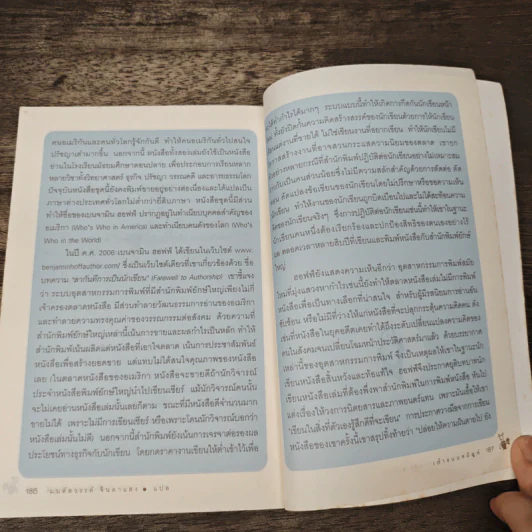 คนอเมริกันและคนทั่วโลกรู้จักกันดี ทำให้คนอเมริกันทั่วไปสนใจ
ปรัชญาเต๋ามากขึ้น นอกจากนี้ หนังสือทั้งสองเล่มยังใช้เป็นหนังสือ
อ่านในโรงเรียนมัธยมศึกษาตอนปลาย เพื่อประกอบการเรียนหลาก
หลายวิชาทั้งวิทยาศาสตร์ ธุรกิจ ปรัชญา วรรณคดี และอารยธรรมโลก
ปัจจุบันหนังสือชุดนี้ยังคงพิมพ์ขายอยู่อย่างต่อเนื่องและได้แปลเป็น
ภาษาต่างประเทศทั่วโลกไม่ต่ำกว่ายี่สิบภาษา หนังสือชุดนี้มีส่วน
ทำให้ชื่อของเบนจามิน ฮอฟฟ์ ปรากฏอยู่ในทำเนียบบุคคลสำคัญของ
อเมริกา (Who's Who in America) และทำเนียบคนดังของโลก (Who's
Who in the World)
ในปี ค.ศ. 2006 เบนจามิน ฮอฟฟ์ ได้เขียนในเว็บไซต์ www.
benjaminhoffauthor.com/ ซึ่งเป็นเว็บไซต์เดียวที่เขาเกี่ยวข้องด้วย ชื่อ
บทความ "ลาก่อนการเป็นนักเขียน" (Farewell to Authorship) เขาชี้แจง
ว่า ระบบอุตสาหกรรมการพิมพ์ที่มีสำนักพิมพ์ยักษ์ใหญ่เพียงไม่กี่
เจ้าครองตลาดหนังสือ มีส่วนทำลายวัฒนธรรมการอ่านของอเมริกา
และทำลายความทรงคุณค่าของวรรณกรรมต่อสังคม ด้วยความที่
สำนักพิมพ์ยักษ์ใหญ่เหล่านี้เน้นการขายและผลกำไรเป็นหลัก ทำให้
สำนักพิมพ์เน้นผลิตแต่หนังสือที่เอาใจตลาด เน้นการประชาสัมพันธ์
หนังสือเพื่อสร้างยอดขาย แต่แทบไม่ได้สนใจคุณภาพของหนังสือ
เลย (ในตลาดหนังสือของอเมริกา หนังสือจะขายดีถ้านักวิจารณ์
ประจำหนังสือพิมพ์ยักษ์ใหญ่นำไปเขียนเชียร์ แม้นักวิจารณ์คนนั้น
จะไม่เคยอ่านหนังสือเล่มนั้นเลยก็ตาม ขณะที่มีหนังสือดีจำนวนมาก
ขายไม่ได้ เพราะไม่มีการเขียนเชียร์ หรือเพราะโดนนักวิจารณ์บอกว่า
หนังสือเล่มนั้นไม่ดี) นอกจากนี้สำนักพิมพ์ยังเน้นการเจรจาต่อรองผล
ประโยชน์ทางธุรกิจกับนักเขียน โดยกดราคางานเขียนให้ต่ำเข้าไว้เพื่อ
186 มนต์สวรรค์ จินดาแสง ● แปล
ได้ทำกำไรได้มากๆ ระบบแบบนี้ทำให้เกิดการกีดกันนักเขียนหน้า
ทั้งยังปิดกั้นความคิดสร้างสรรค์ของนักเขียนด้วยการให้นักเขียน
ผลิตแต่งานที่ขายได้ ไม่ใช่เขียนงานที่อยากเขียน ทำให้นักเขียนไม่มี
สร้างงานที่อาจสวนกระแสความนิยมของตลาด เขายก
หลายกรณีที่สำนักพิมพ์ปฏิบัติต่อนักเขียนอย่างไม่เหมาะสม
ราวกับเป็นคนส่วนน้อยซึ่งไม่มีความสลักสำคัญด้วยการตัดต่อ ตัด
ตอน ดัดแปลงข้อเขียนของนักเขียนโดยไม่ปรึกษาหรือขอความเห็น
นักเขียน ทำให้งานของนักเขียนถูกบิดเบือนไปและไม่ได้สะท้อนความ
คิดของนักเขียนจริงๆ ซึ่งการปฏิบัติต่อนักเขียนเช่นนี้ทำให้เขาในฐานะ
นักเขียนคนหนึ่งต้องเรียกร้องและปกป้องสิทธิของตนเองอย่างไร้
ผล ตลอดเวลาหลายสิบปีที่เขียนและพิมพ์หนังสือกับสำนักพิมพ์ยักษ์
ใหญ่
ฮอฟฟ์ยังแสดงความเห็นอีกว่า อุตสาหกรรมการพิมพ์สมัย
ใหม่ที่มุ่งแสวงหากำไรเช่นนี้ยังทำให้ตลาดหนังสือเล่มไม่มีการพิมพ์
หนังสือเพื่อเป็นทางเลือกที่น่าสนใจ สำหรับผู้มีรสนิยมการอ่านอัน
ซับซ้อน หรือไม่มีที่ว่างให้แก่หนังสือที่จะปลุกกระตุ้นความคิดคน ดัง
เช่นที่หนังสือในยุคอดีตเคยทำได้ถึงระดับเปลี่ยนแปลงความคิดของ
คนในสังคมจนเปลี่ยนโฉมหน้าประวัติศาสตร์มาแล้ว ด้วยบรรยากาศ
เหล่านี้ของอุตสาหกรรมการพิมพ์ จึงเป็นเหตุผลให้เขาในฐานะนัก
เขียนหนังสือสิ้นหวังและท้อแท้ใจ ฮอฟฟ์จึงประกาศยุติบทบาทนัก
เขียนหนังสือเล่มที่ต้องพึ่งพาสำนักพิมพ์ในการพิมพ์หนังสือ หันไป
แต่งเรื่องให้วงการโดยสารและภาพยนตร์แทน เพราะมันเอื้อให้เขา
"เขียนในสิ่งที่ตัวเองรู้สึกดีที่จะเขียน" การประกาศวางมือจากการเขียน
หนังสือของเขาครั้งนี้เขาสรุปทิ้งท้ายว่า "ปล่อยให้ความฝันตายไป ยัง
187